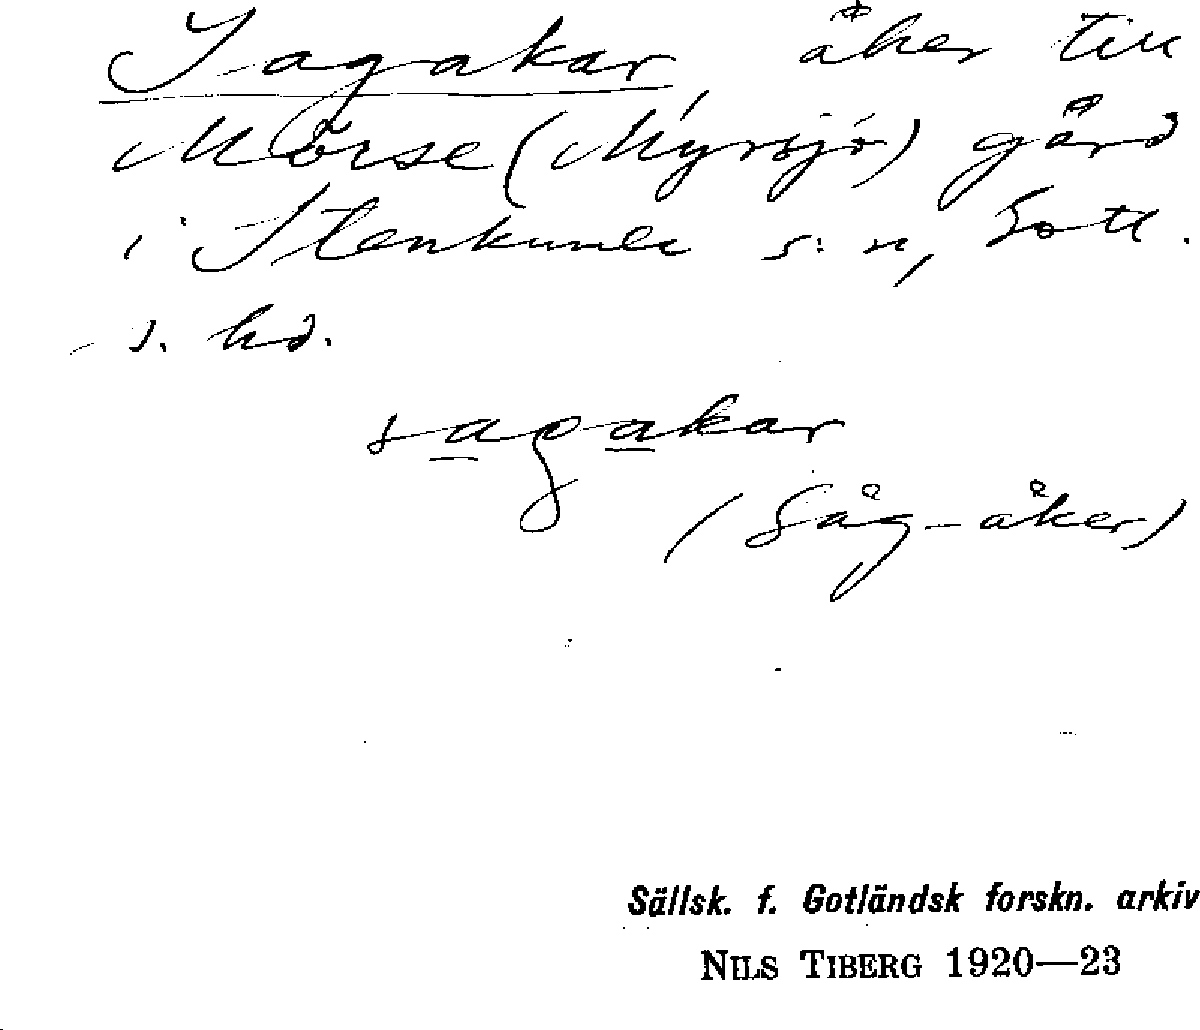 Sagakar, åker till
Mörse (Myrsjö) gård
i Stenkumla s:n, Gotl.
s. hd.
sagakar
(Såg-åker)
Sällsk. f. Gotländsk forskn. arkiv
NILS TIBERG 1920—23